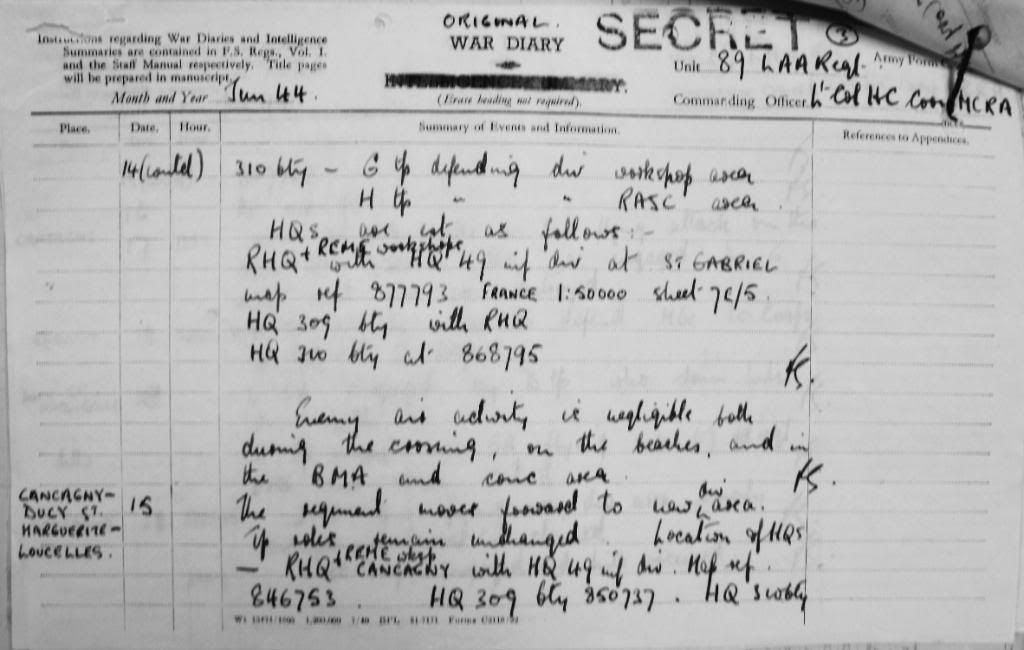 ORIGINAL.
WAR DIARY
SECRET
3
Instructions regarding War Diaries and Intelligence
Summaries are contained in F.S. Regs., Vol. I.
and the Staff Manual respectively. Title pages
will be prepared in manuscript.
Month and Year Jun 44.
INTELLIGENCE SUMMARY.
(Erase heading not required).
Army Form
Unit 89 LAA Regt.
Commanding Officer Lt-Col HC MCRA
Place. Date. Hour. Summary of Events and Information. References to Appendices.
14 (contd) 310 bty - G tp defending div workshop area
H tp " " RASC area.
HQs are est as follows:-
RHQ + REME workshops with HQ 49 inf div at ST GABRIEL
map ref 877793 FRANCE 1:50000 sheet 7E/5.
HQ 309 bty with RHQ
HQ 310 bty at 868795
Enemy air activity is negligible both
during the crossing, on the beaches, and in
the BMA and conc area.
CANCAGNY-
DUCY ST.
MARGUERITE-
LOUCELLES.
15 The regiment moves forward to new div area.
Tp roles remain unchanged. Location of HQs
- RHQ + REME wksp CANCAGNY with HQ 49 inf div. Map ref.
846753. HQ 309 bty 850737. HQ 310 bty